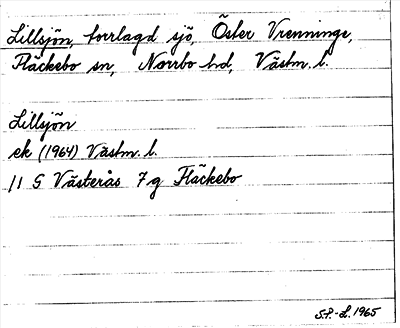 Lillsjön, torrlagd sjö, Öster Vrenninge,
Fläckebo sn, Norrbo hd, Västm. l.
Lillsjön
ek (1964) Västm. l.
11 G Västerås 7 g Fläckebo
S.P.-L. 1965